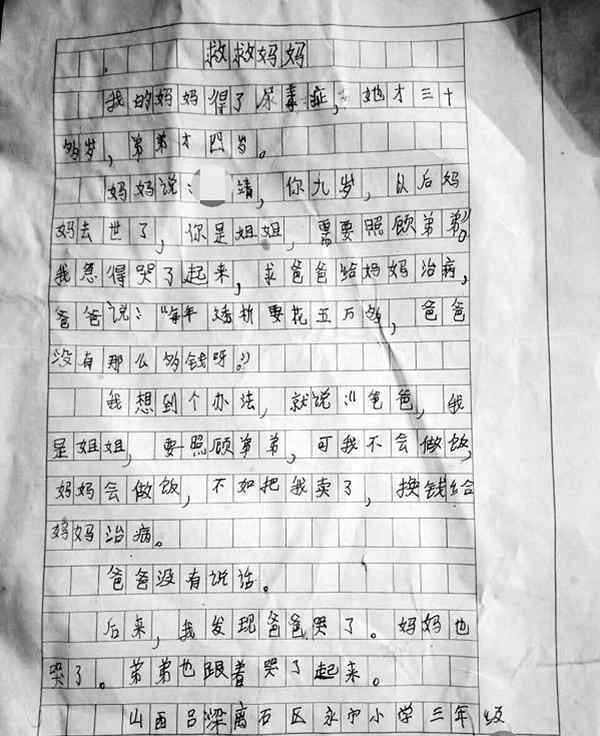 救救妈妈
我的妈妈得了尿毒症，她才三十
多岁，弟弟才四岁。
妈妈说：靖，你九岁，以后妈
妈去世了，你是姐姐，需要照顾弟弟”。
我急得哭了起来，求爸爸给妈妈治病，
爸爸说：“每年透析要花五万多，爸爸
没有那么多钱呀。”
我想到个办法，就说“爸爸，我
是姐姐，要照顾弟弟，可我不会做饭，
妈妈会做饭，不如把我卖了，换钱给
妈妈治病。
爸爸没有说话。
后来，我发现爸爸哭了。妈妈也
哭了。弟弟也跟着哭了起来。
山西吕梁离石区永宁小学三年级